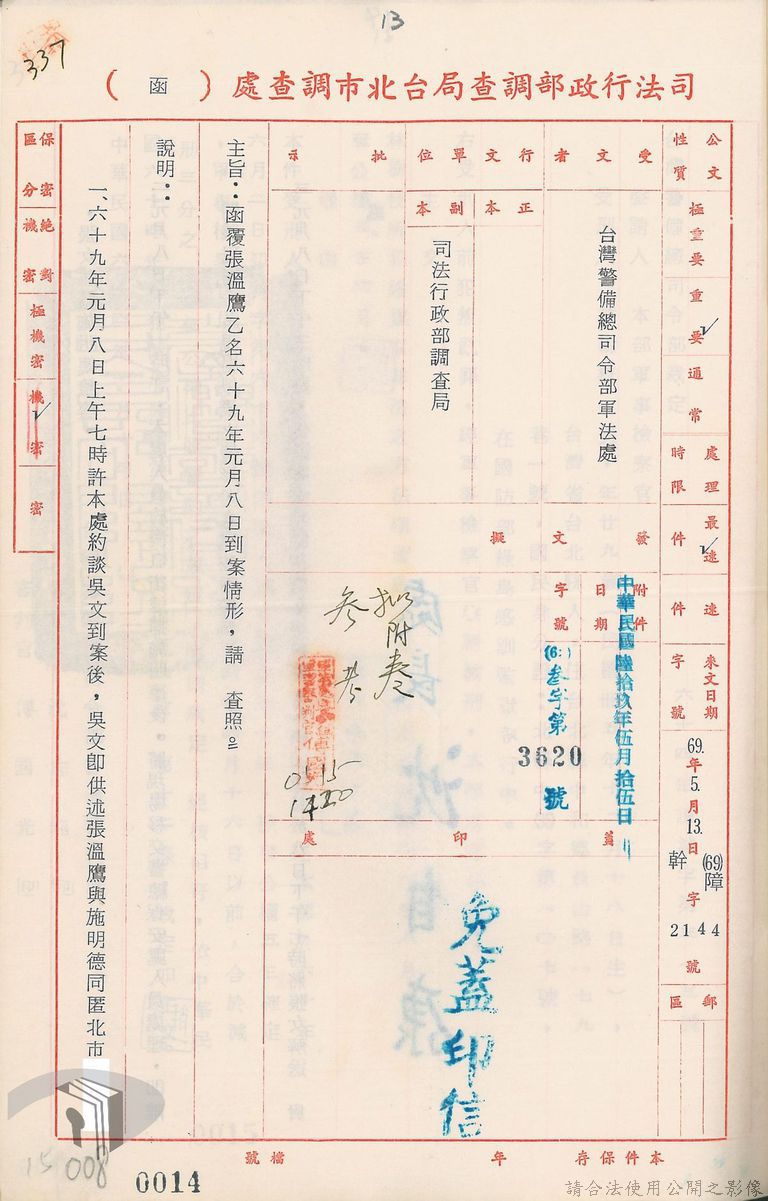 13
337
司法行政部調查局台北市調查處（函）
公文性質
極重要
重要
通常
處理時限
最速件
速件
來文日期字號
69.年5.月13.日
(69)障幹字4421 44號
郵區
受文者
台灣警備總司令部軍法處
行文單位
正本
副本
司法行政部調查局
批示
發文
附件
日期
字號
中華民國陸拾玖年伍月拾伍日
叁字第3620號
擬
擬附卷
參考
0515
1420
蓋印處
免蓋印信
主旨：函覆張溫鷹乙名六十九年元月八日到案情形，請　查照。
說明：
一、六十九年元月八日上午七時許本處約談吳文到案後，吳文即供述張溫鷹與施明德同匿北市
保密區分
絕對機密
極機密
機密
密
本件保存　年
檔號
0014
15
008
請合法使用公開之影像